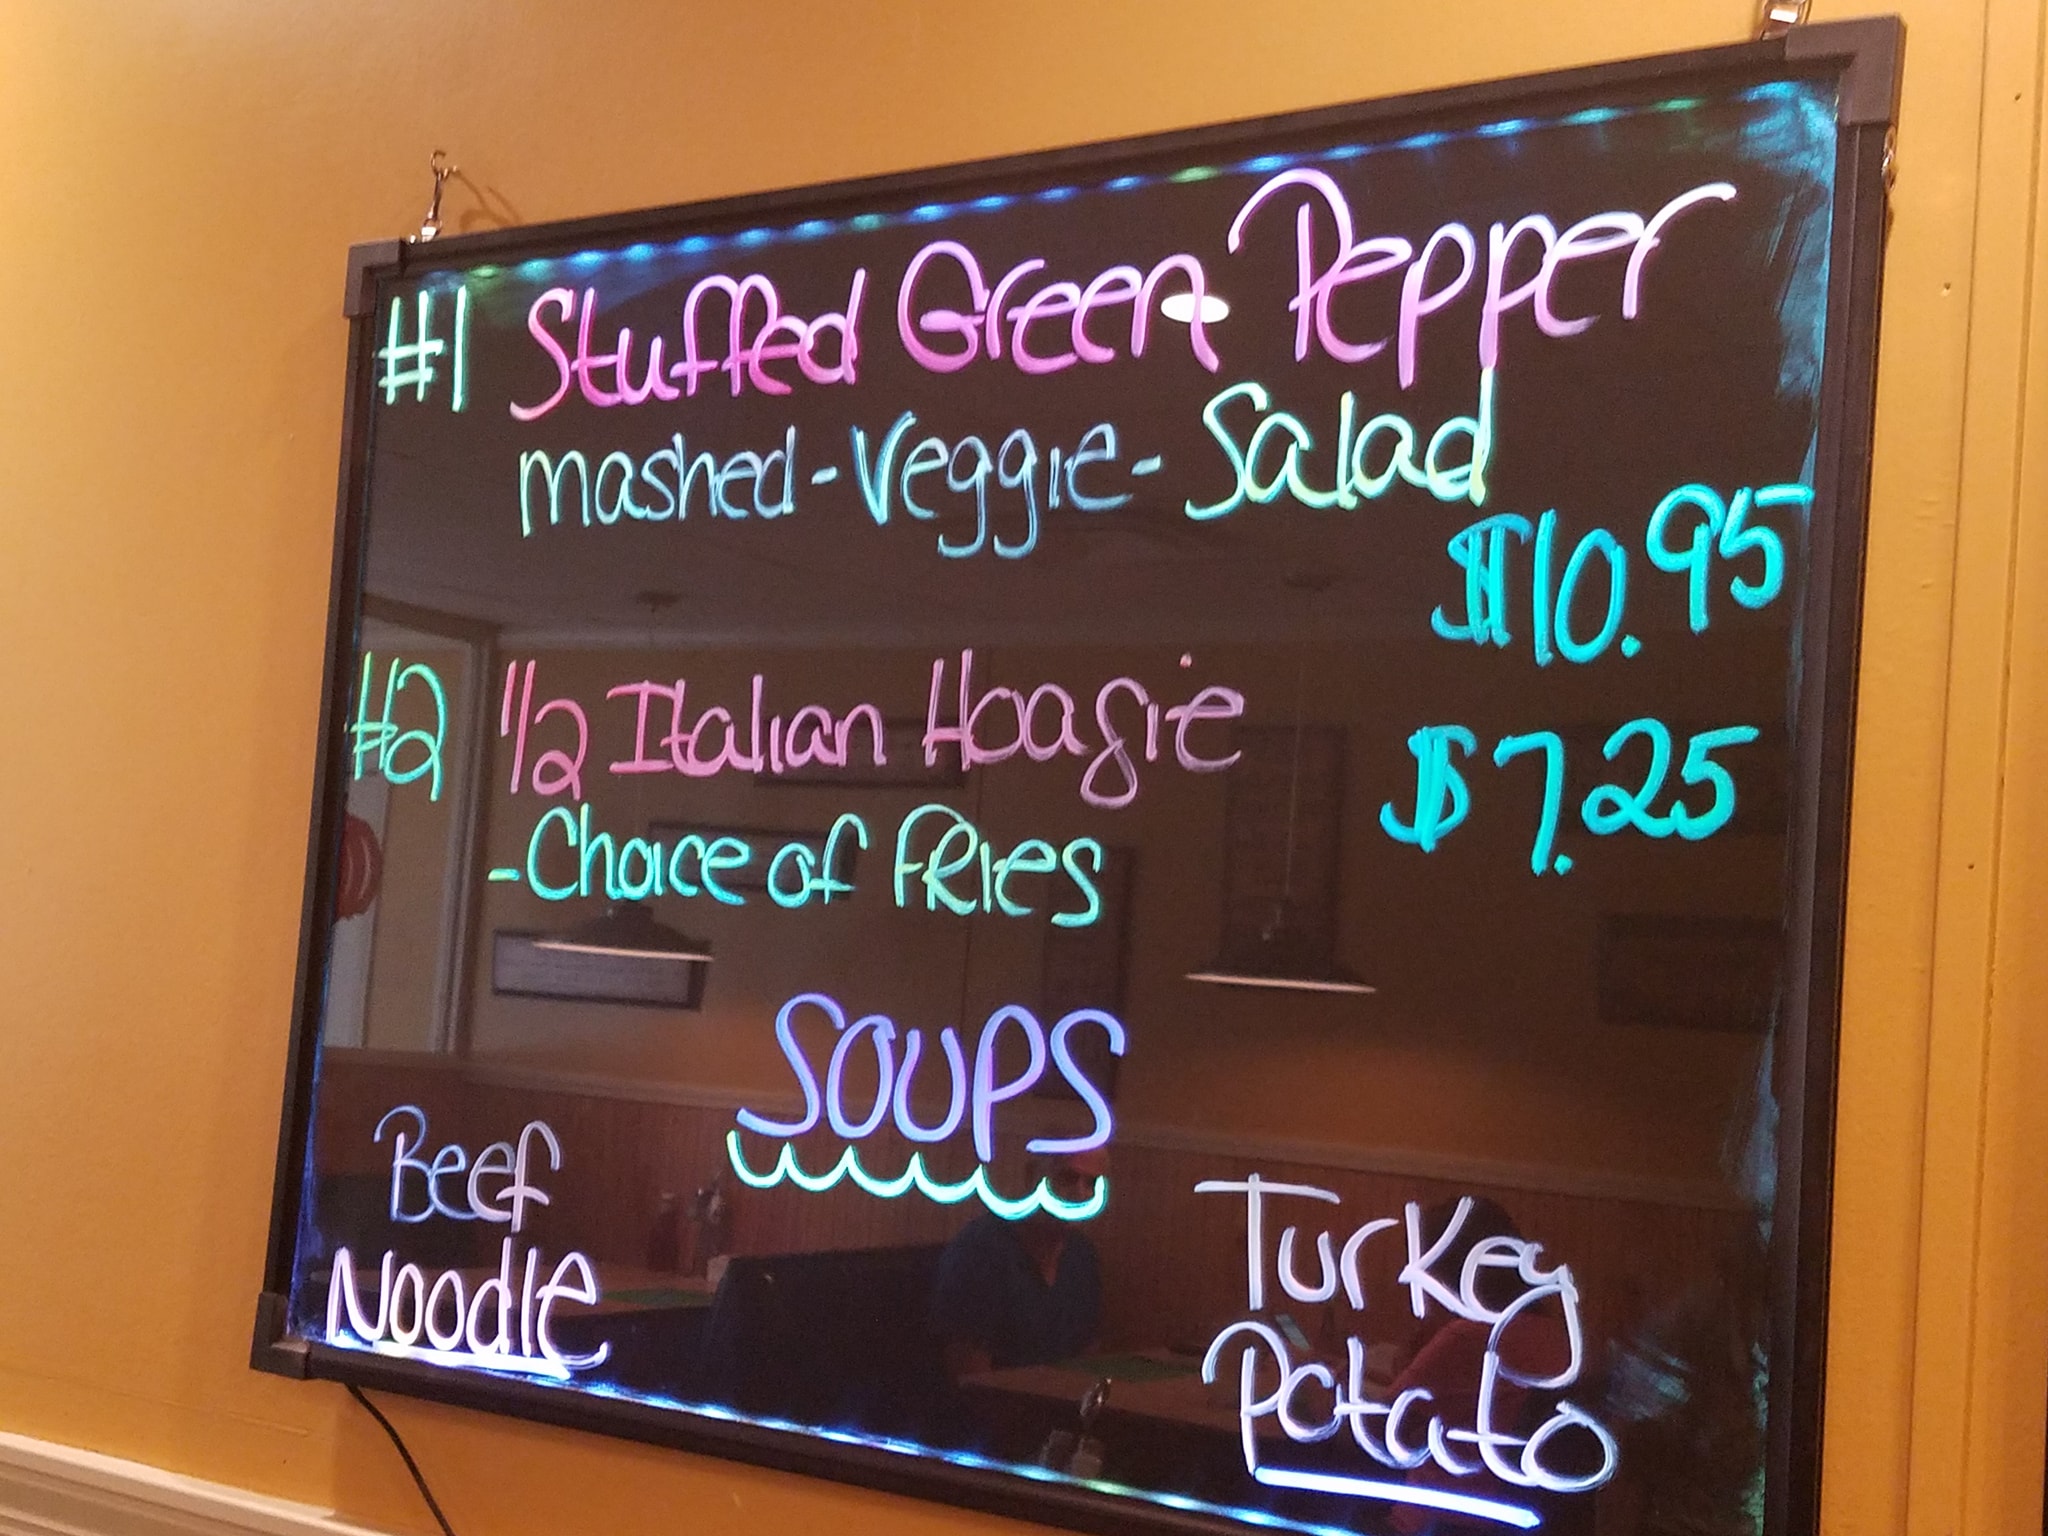 #1 Stuffed Green Pepper
mashed - Veggie - Salad
$10.95
#2 1/2 Italian Hoagie $7.25
- Choice of FRies
SOUPS
Beef
Noodle
Turkey
Potato